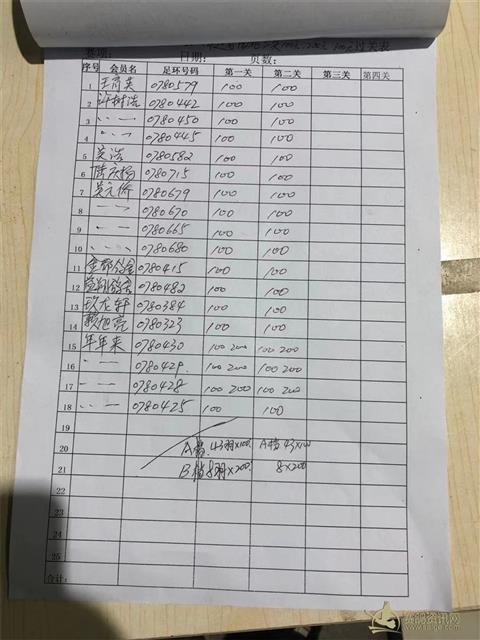 赛项: 日期: 页数:
序号 会员名 足环号码 第一关 第二关 第三关 第四关
1 王育英 0780579 100 100
2 许树浩 0780442 100 100
3 〃 一 0780450 100 100
4 〃 一 0780445 100 100
5 吴浩 0780582 100 100
6 陈庆杨 0780715 100 100
7 吴元侨 0780679 100 100
8 0780670 100 100
9 0780665 100 100
10 0780680 100 100
11 0780415 100 100
12 0780482 100 100
13 玖龙轩 0780384 100 100
14 赖旭亮 0780323 100 100
15 年年来 0780430 100 200 100 200
16 0780429 100 200 100 200
17 0780428 100 200 100 200
18 0780425 100 100
19
20 A档 43羽×100 A档 43×100
21 B档 8羽×200 8×200
22
23
24
25
合计:
赛鸽资讯网